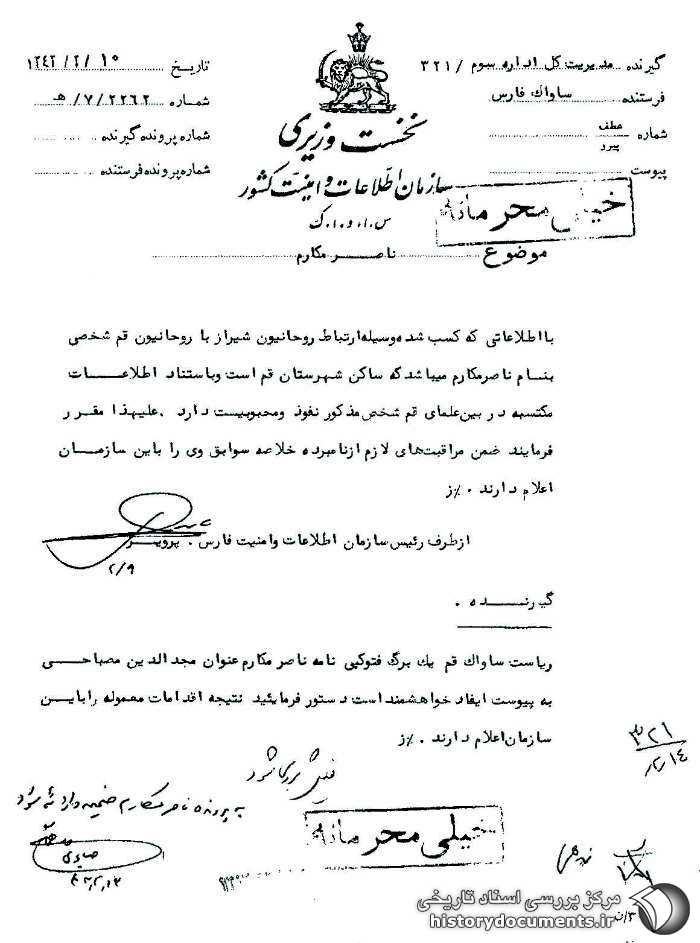 گیرنده مدیریت کل اداره سوم /۳۲۱
فرستنده ساواک فارس
شماره عطف پیرو
پیوست
نخست وزیری
سازمان اطلاعات و امنیت کشور
س.ا.و.ا.ک
تاریخ ۱۳۴۲/۲/۱۰
شماره ۲۲۶۲/۷/ﻫ
شماره پرونده گیرنده
شماره پرونده فرستنده
خیلی محرمانه
موضوع ناصر مکارم
بااطلاعاتی که کسب شده وسیله ارتباط روحانیون شیراز با روحانیون قم شخصی
بنام ناصر مکارم میباشد که ساکن شهرستان قم است وباستناد اطلاعات
مکتسبه در بین علمای قم شخص مذکور نفوذ ومحبوبیت دارد . علیهذا مقرر
فرمایند ضمن مراقبت‌های لازم از نامبرده خلاصه سوابق وی را باین سازمان
اعلام دارند ۰٪ز
از طرف رئیس سازمان اطلاعات وامنیت فارس . پرویز
۲/۹
گیرنده .
ریاست ساواک قم یک برگ فتوکپی نامه ناصر مکارم عنوان مجدالدین مصباحی
به پیوست ایفاد خواهشمند است دستور فرمائید نتیجه اقدامات معموله را باین
سازمان اعلام دارند ۰٪ز
۳۲۱
۲/۱۴
به پرونده ناصر مکارم ضمیمه و ارائه شود
خیلی محرمانه
مرکز بررسی اسناد تاریخی
historydocuments.ir